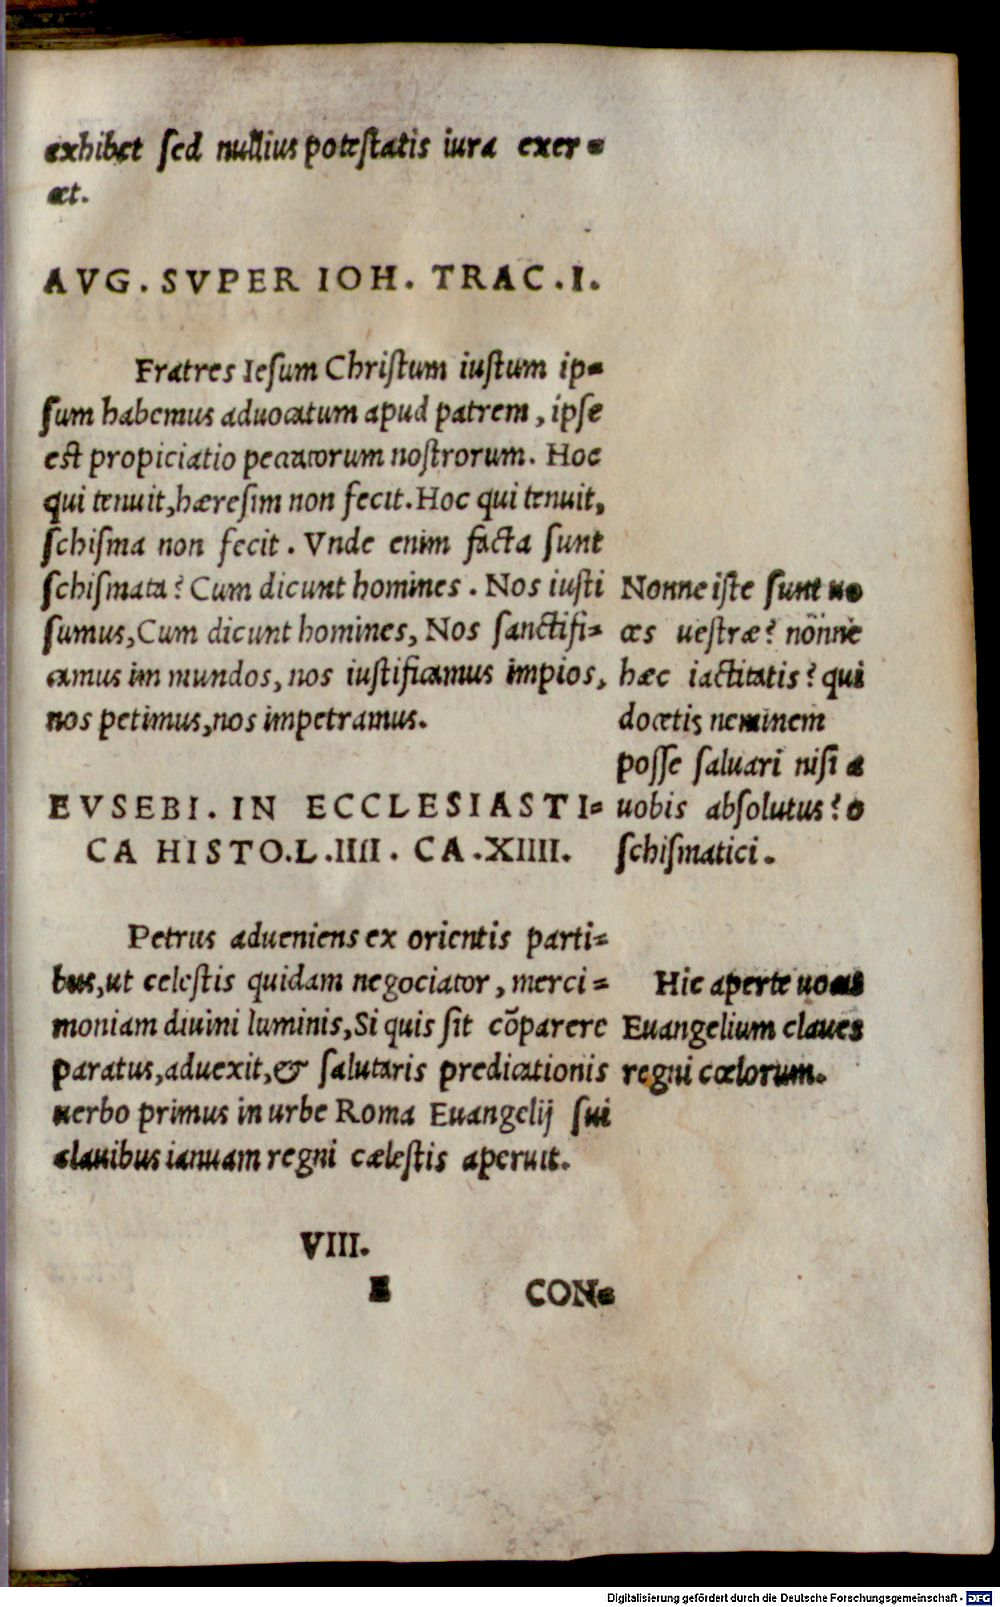 exhibet sed nullius potestatis iura exer-
cet.
AVG. SVPER IOH. TRAC. I.
Fratres Iesum Christum iustum ip-
sum habemus aduocatum apud patrem, ipse
est propiciatio peccatorum nostrorum. Hoc
qui tenuit, hæresim non fecit. Hoc qui tenuit,
schisma non fecit. Vnde enim facta sunt
schismata? Cum dicunt homines. Nos iusti
sumus, Cum dicunt homines, Nos sanctifi-
camus im mundos, nos iustificamus impios,
nos petimus, nos impetramus.
EVSEBI. IN ECCLESIASTI-
CA HISTO. L. IIII. CA. XIIII.
Petrus adueniens ex orientis parti-
bus, ut celestis quidam negociator, merci-
moniam diuini luminis, Si quis sit cõparere
paratus, aduexit, & salutaris predicationis
uerbo primus in urbe Roma Euangelij sui
clauibus ianuam regni cælestis aperuit.
Nonne iste sunt uo
ces uestræ? nonne
hæc iactitatis? qui
docetis neminem
posse saluari nisi a
uobis absolutus? o
schismatici.
Hic aperte uocas
Euangelium claues
regni cœlorum.
VIII.
E
CON-
Digitalisierung gefördert durch die Deutsche Forschungsgemeinschaft - DFG